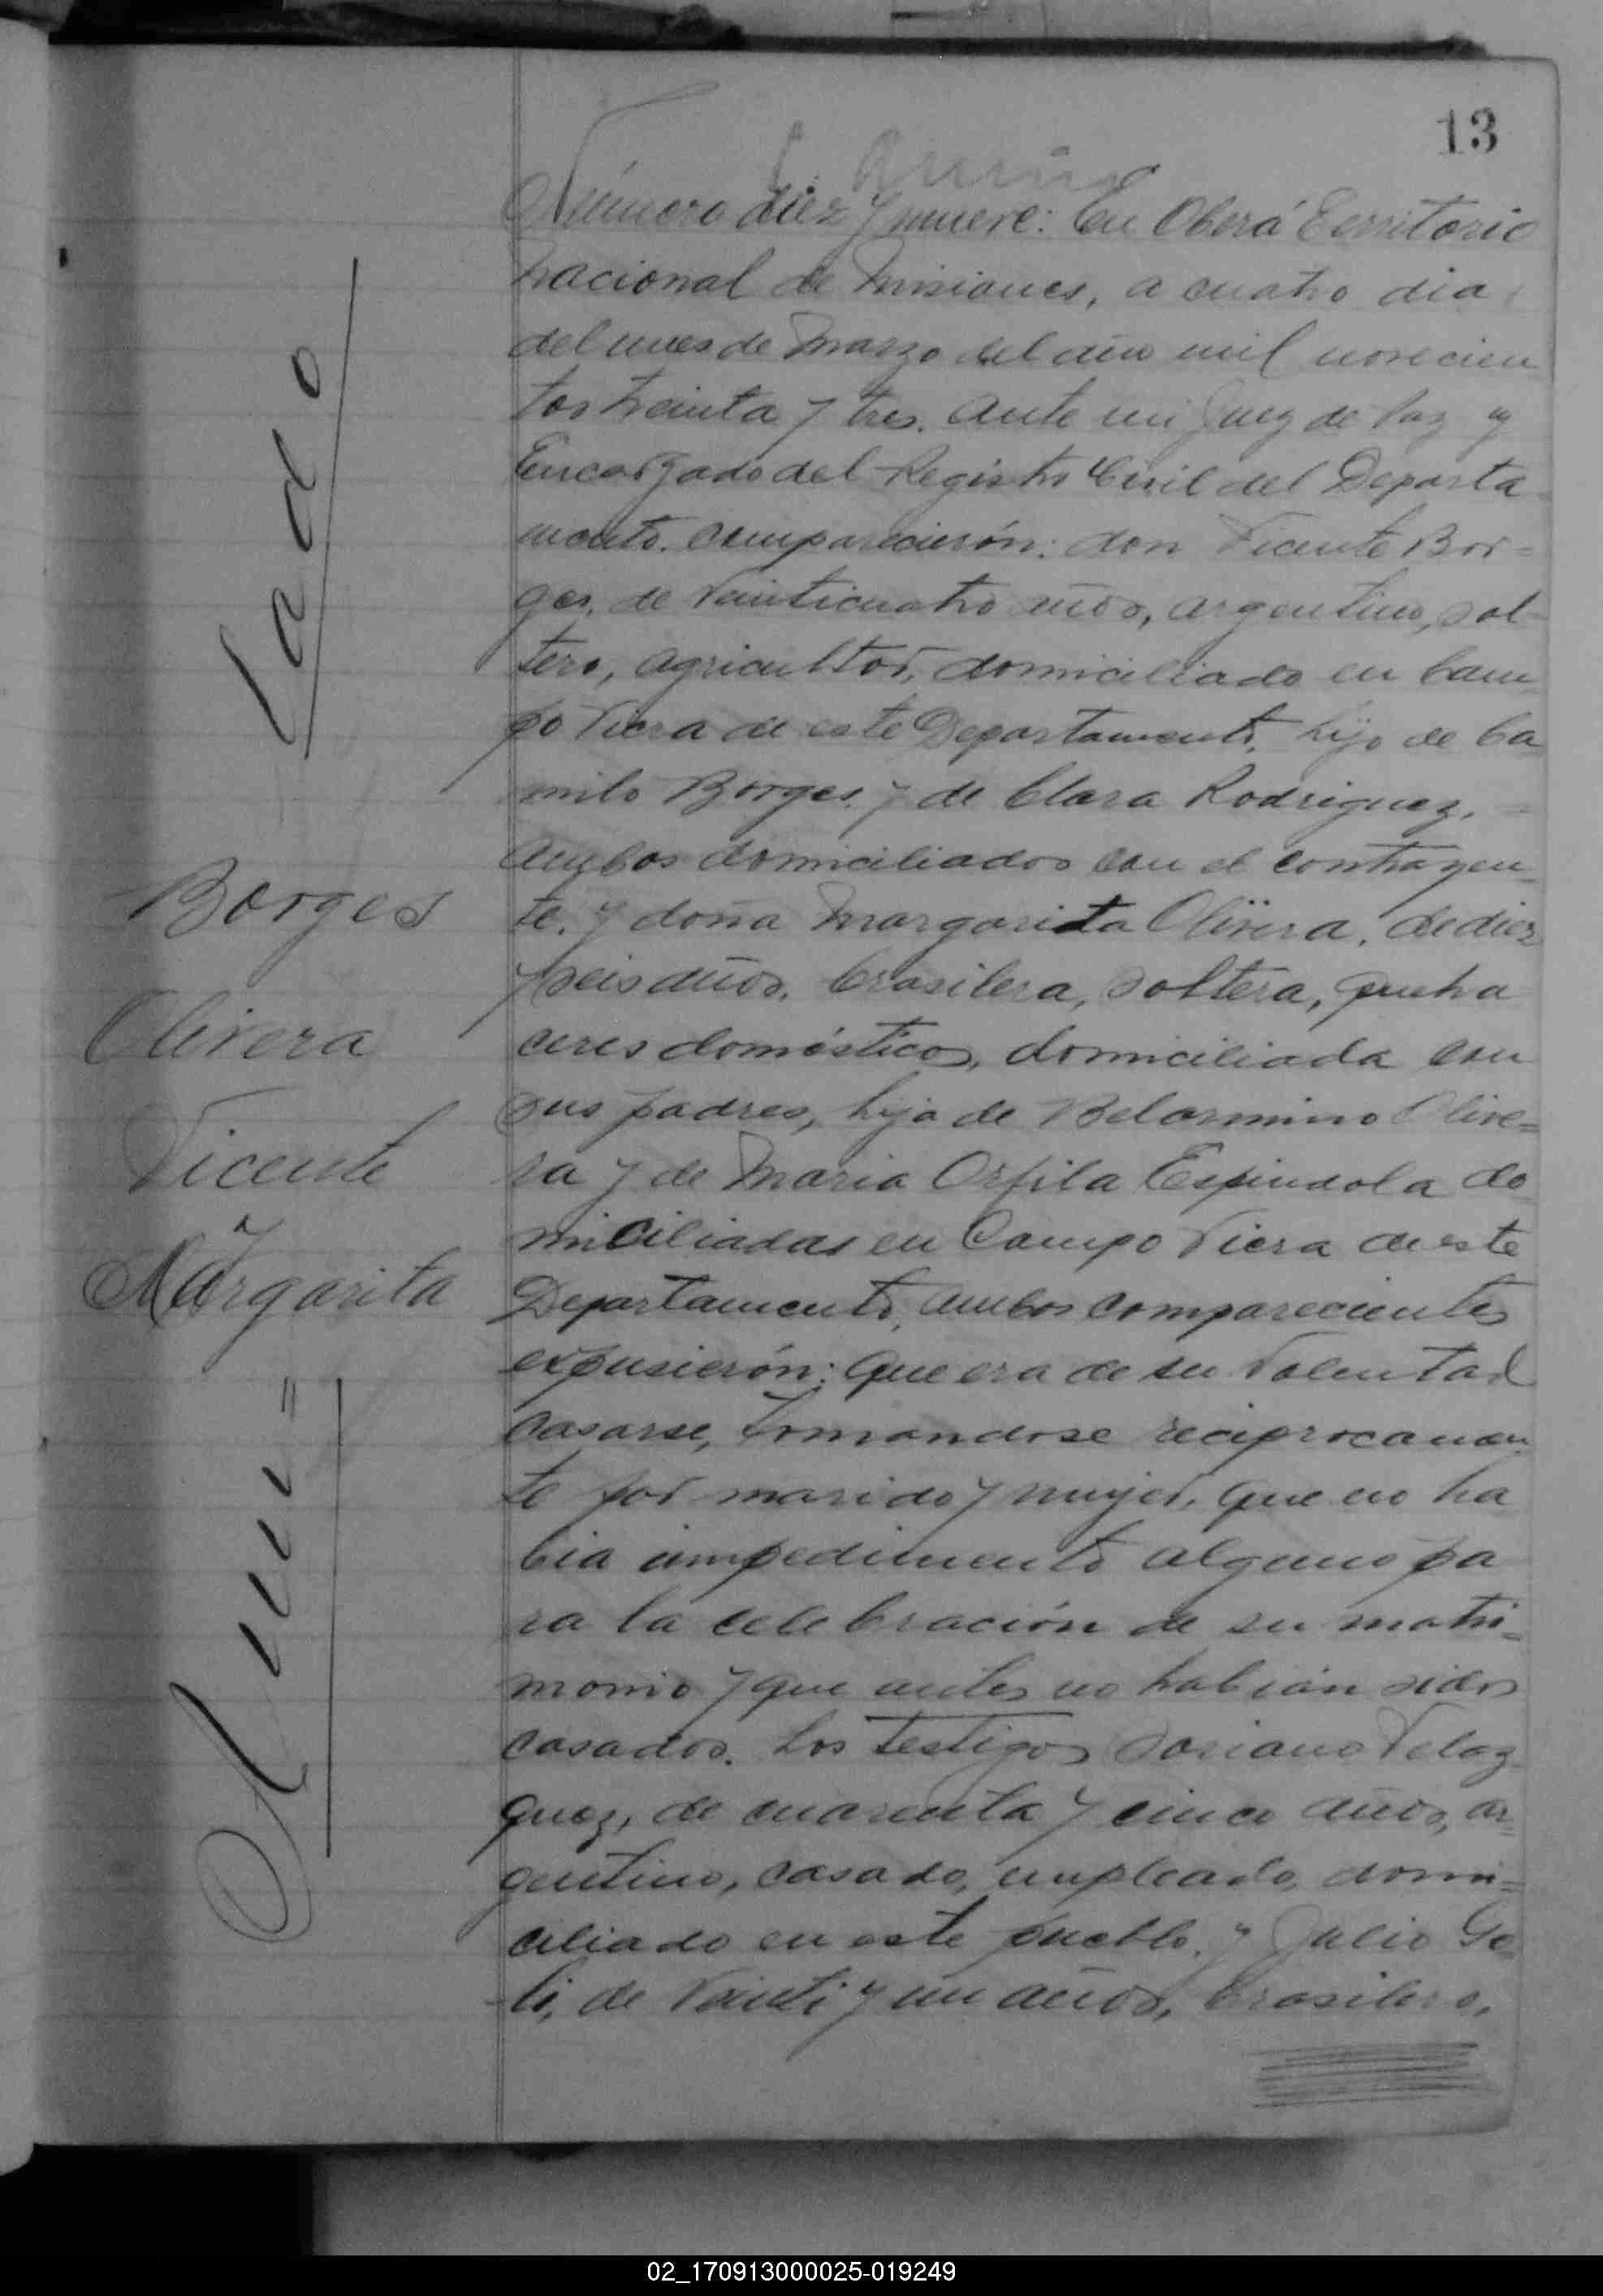 13
Número diez y nueve: En Oberá Territorio
nacional de Misiones, a cuatro dia
del mes de Marzo del año mil novecien
tos treinta y tres. ante mi Juez de Paz y
Encargado del Registro Civil del Departa
mento. comparecierón: don Vicente Bor=
ges, de veinticuatro años, argentino, sol
tero, agricultor, domiciliado en Cam
po Viera de este Departamento, hijo de Ca
milo Borges y de Clara Rodriguez,
ambos domiciliados con el contrayen
te. y doña Margarita Olivera, de diez
y seis años. brasilera, soltera, queha
ceres domésticos, domiciliada con
sus padres, hija de Belarmino Olive=
ra y de Maria Orfila Espindola do
miciliadas en Campo Viera de este
Departamento, ambos comparecientes
expusierón: que era de su voluntad
casarse, tomandose reciprocamen
te por marido y mujer, que no ha
bia impedimento alguno pa
ra la celebración de su matri=
monio y que antes no habian sidos
casados. Los testigos Soriano Velaz
quez, de cuarenta y cinco años, ar=
gentino, casado, empleado, domi=
ciliado en este pueblo. y Julio Go
li, de veinti y un años, brasilero,
Borges
Olivera
Vicente
y
Margarita
02_170913000025-019249